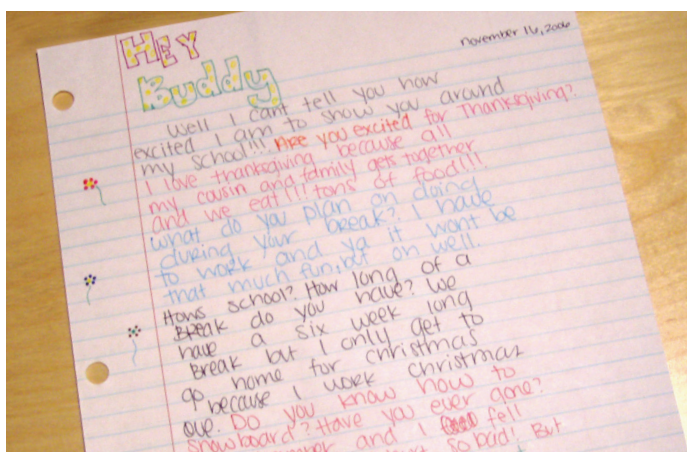 HEY
november 16, 2006
Buddy
Well I cant tell you how
excited I am to show you around
my school!!! Are you excited for Thanksgiving?
I love thanksgiving because all
my cousin and family gets together
and we eat!!! tons of food!!!
what do you plan on doing
during your break? I have
to work and ya it wont be
that much fun, but oh well.
Hows school? How long of a
Break do you have? We
have a six week long
Break but I only get to
go home for christmas
because I work christmas
eve. Do you know how to
snowboard? Have you ever gone?
and I fell
so bad! But